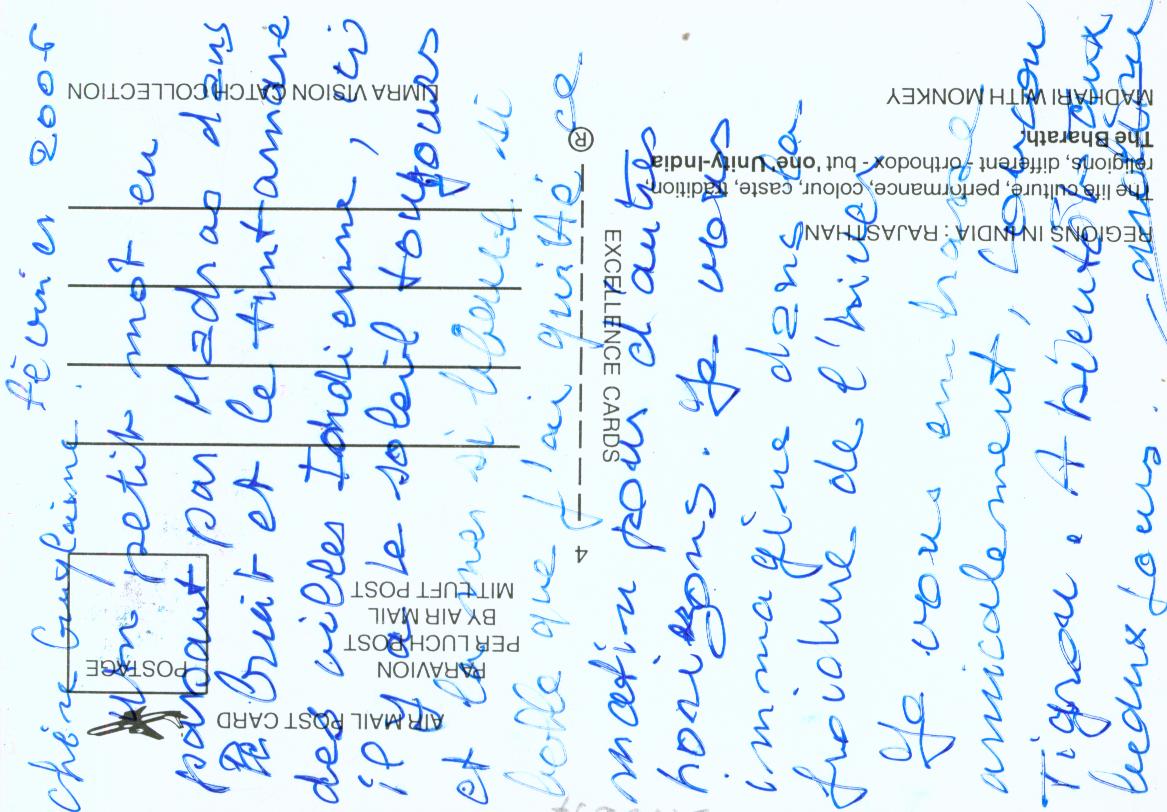 février 2006
Chère Guylaine.
Un petit mot en
passant par Madras dans
le bruit et le tintamare
des villes Indienne, ici
il y a le soleil toujours
et la mer si beauté si
belle que j'ai quitté ce
matin pour d'autres
horizons. Je vous
immagine dans la
froidure de l'hiver
Je vous embrasse
amicalement,
Tigrou. A bientôt aux
beaux jours.
AIR MAIL POST CARD
POSTAGE
PARAVION
PER LUCH POST
BY AIR MAIL
MIT LUFT POST
LIMRA VISION CATCH COLLECTION
4
EXCELLENCE CARDS
®
REGIONS IN INDIA : RAJASTHAN
The life culture, performance, colour, caste, tradition-
religions, different - orthodox - but 'one' Unity-India
The Bharath.
MADHARI WITH MONKEY